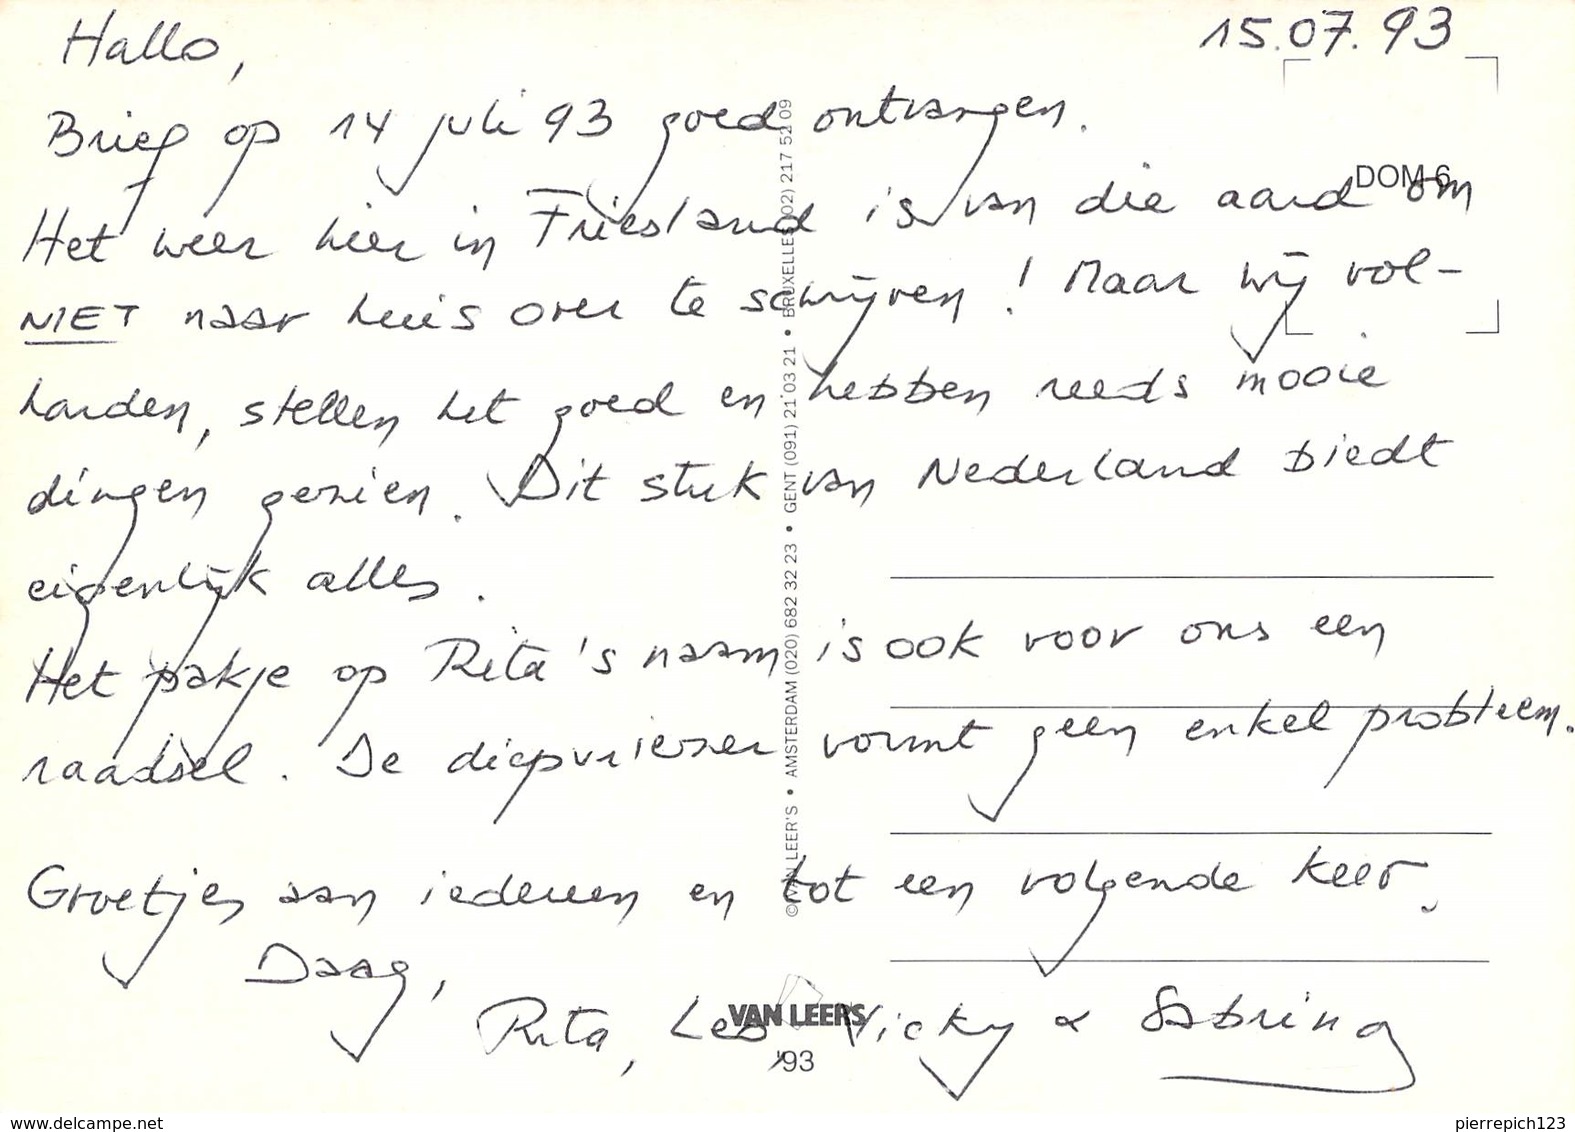 15.07.93
Hallo,
Brief op 14 juli 93 goed ontvangen.
DOM 6
Het weer hier in Friesland is van die aard om
NIET naar huis over te schrijven ! Maar wij vol-
harden, stellen het goed en hebben reeds mooie
dingen gezien. Dit stuk van Nederland biedt
eigenlijk alles.
Het pakje op Rita's naam is ook voor ons een
raadsel. De diepvriezer vormt geen enkel probleem.
Groetjes aan iedereen en tot een volgende keer.
Daag,
Rita, Leo, Vicky & Sabrina
© VAN LEER'S • AMSTERDAM (020) 682 32 23 • GENT (091) 21 03 21 • BRUXELLES (02) 217 52 09
VAN LEERS
'93
www.delcampe.net
pierrepich123